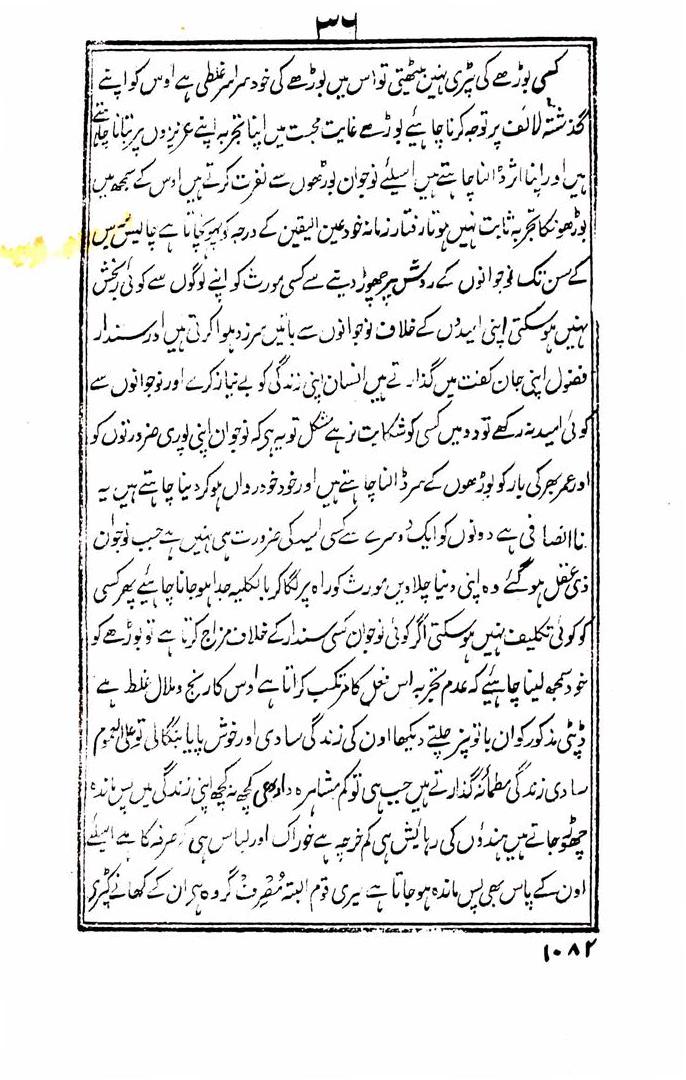 ۳۶
کسی بوڑھے کی پٹری نہیں بیٹھتی تو اس میں بوڑھے کی خود سراسر غلطی ہے اوس کو اپنے
گذشتہ لائف پر توجہ کرنا چاہیئے بوڑھے غایت محبت میں اپنا تجربہ اپنے عزیزوں پر بتانا چاہتے
ہیں اور اپنا اثر ڈالنا چاہتے ہیں اسیلئے نوجوان بوڑھوں سے نفرت کرتے ہیں اوس کے سمجھ میں
بوڑھونکا تجربہ ثابت نہیں ہوتا رفتار زمانہ خود عین الیقین کے درجہ کو پہونچاتا ہے چالیس
کے سن تک نوجوانوں کے روش پر چھوڑ دینے سے کسی مورث کو اپنے لوگوں سے کوئی رنجش
نہیں ہو سکتی اپنی امیدوں کے خلاف نوجوانوں سے باتیں سرزد ہوا کرتی ہیں اور سندار
فضول اپنی جان کفت میں گذارتے ہیں انسان اپنی زندگی کو بے نیاز کرے اور نوجوانوں سے
کوئی امید نہ رکھے تو دو میں کسی کو شکایت نہ رہے مشکل تو یہ ہی کہ نوجوان اپنی پوری ضرورتوں کو
اور عمر بھر کی بار کو بوڑھوں کے سر ڈالنا چاہتے ہیں اور خود خود رواں ہو کر دنیا چاہتے ہیں یہ
ناانصافی ہے دونوں کو ایک دوسرے سے کسی امید کی ضرورت ہی نہیں ہے جب نوجوان
ذی عقل ہو گئے وہ اپنی دنیا چلاویں مورث کو راہ پر لگا کر بالکلیہ جدا ہو جانا چاہیئے پھر کسی
کو کوئی تکلیف نہیں ہو سکتی اگر کوئی نوجوان کسی سندار کے خلاف مزاج کرتا ہے تو بوڑھے کو
خود سمجھ لینا چاہیئے کہ عدم تجربہ اس فعل کا مرتکب کراتا ہے اوس کا رنج و ملال غلط ہے
ڈپٹی مذکور کو ان باتوں پر چلتے دیکھا اون کی زندگی سادی اور خوش پایا بنگالی تو علی العموم
سادی زندگی مطمئنہ گذارتے ہیں جب ہی تو کم مشاہرہ دار بھی کچھ نہ کچھ اپنی زندگی میں پس ماندہ
چھوڑ جاتے ہیں ہندوں کی رہایش ہی کم خرچہ ہے خوراک اور لباس ہی کم صرفہ کا ہے اسیلئے
اون کے پاس بھی پس ماندہ ہو جاتا ہے میری قوم البتہ مُصرِف گروہ ہے ان کے کھانے کپڑے
۱۰۸۲